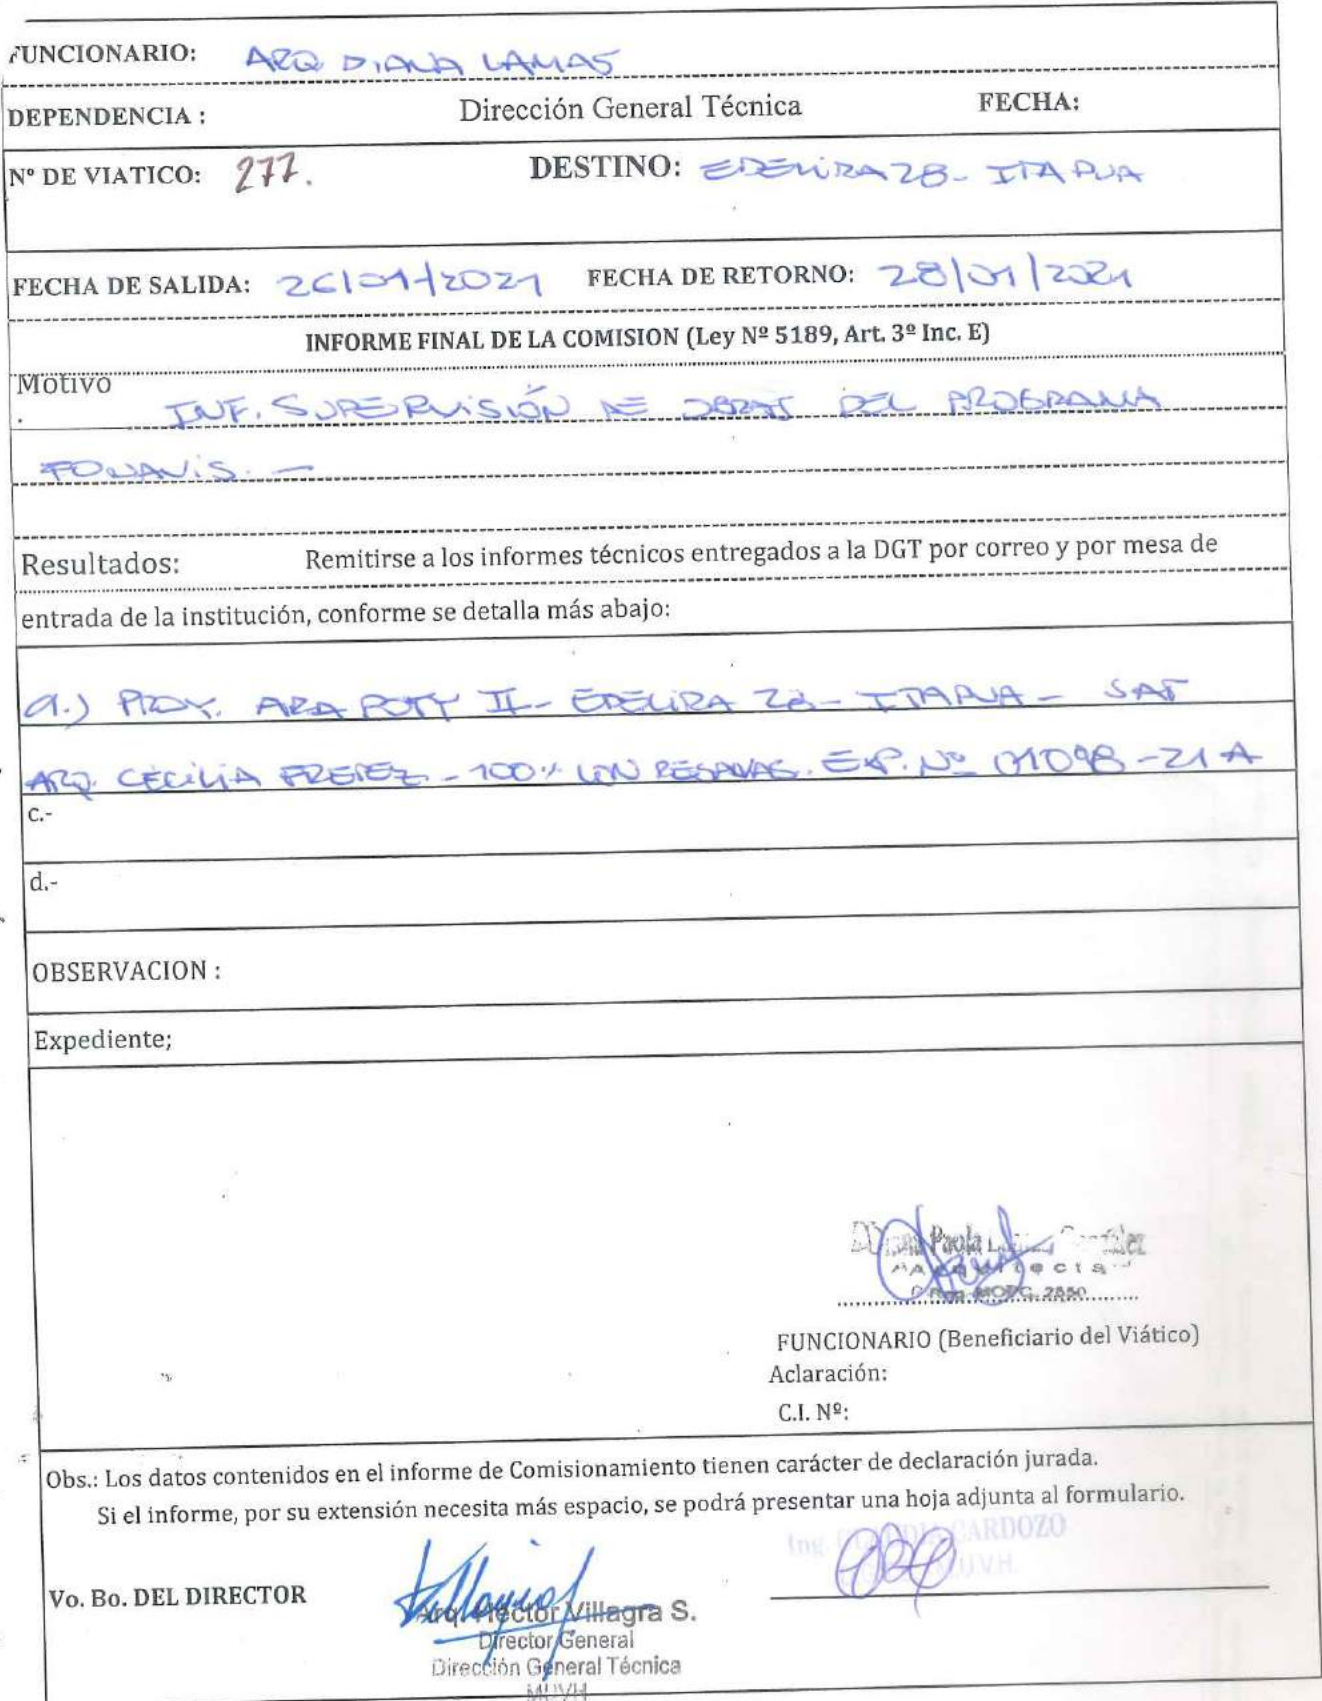 FUNCIONARIO: ARQ DIANA LAMAS
DEPENDENCIA : Dirección General Técnica FECHA:
Nº DE VIATICO: 277. DESTINO: EDELIRA 28 - ITAPUA
FECHA DE SALIDA: 26/01/2021 FECHA DE RETORNO: 28/01/2021
INFORME FINAL DE LA COMISION (Ley Nº 5189, Art. 3º Inc. E)
Motivo
. INF. SUPERVISIÓN DE OBRAS DEL PROGRAMA
FONAVIS. —
Resultados: Remitirse a los informes técnicos entregados a la DGT por correo y por mesa de
entrada de la institución, conforme se detalla más abajo:
a.) PROY. ARA POTY II - EDELIRA 28 - ITAPUA - SAT
ARQ. CECILIA - 100% CON EXP. Nº 01098-21 A
c.-
d.-
OBSERVACION :
Expediente;
Paola
Arquitecta
Reg. MOPC. 2550
FUNCIONARIO (Beneficiario del Viático)
Aclaración:
C.I. Nº:
Obs.: Los datos contenidos en el informe de Comisionamiento tienen carácter de declaración jurada.
Si el informe, por su extensión necesita más espacio, se podrá presentar una hoja adjunta al formulario.
Ing. CARDOZO
MUVH
Vo. Bo. DEL DIRECTOR
Arq. Hector Villagra S.
Director General
Dirección General Técnica
MUVH